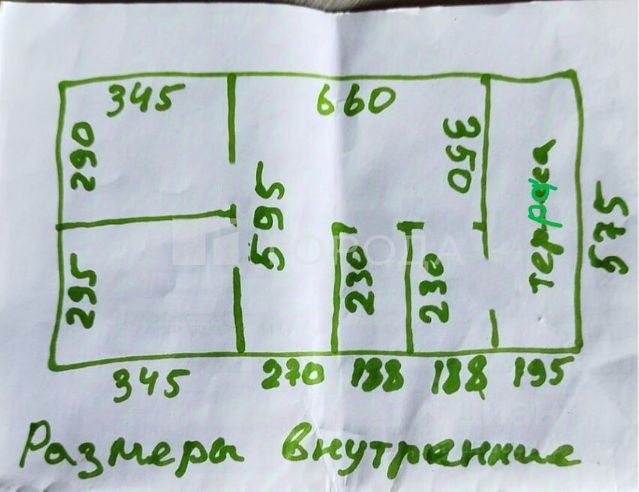 345 660
290 350
595 терраса 575
295 230 230
345 270 188 188 195
Размеры внутренние
ГОРОДА